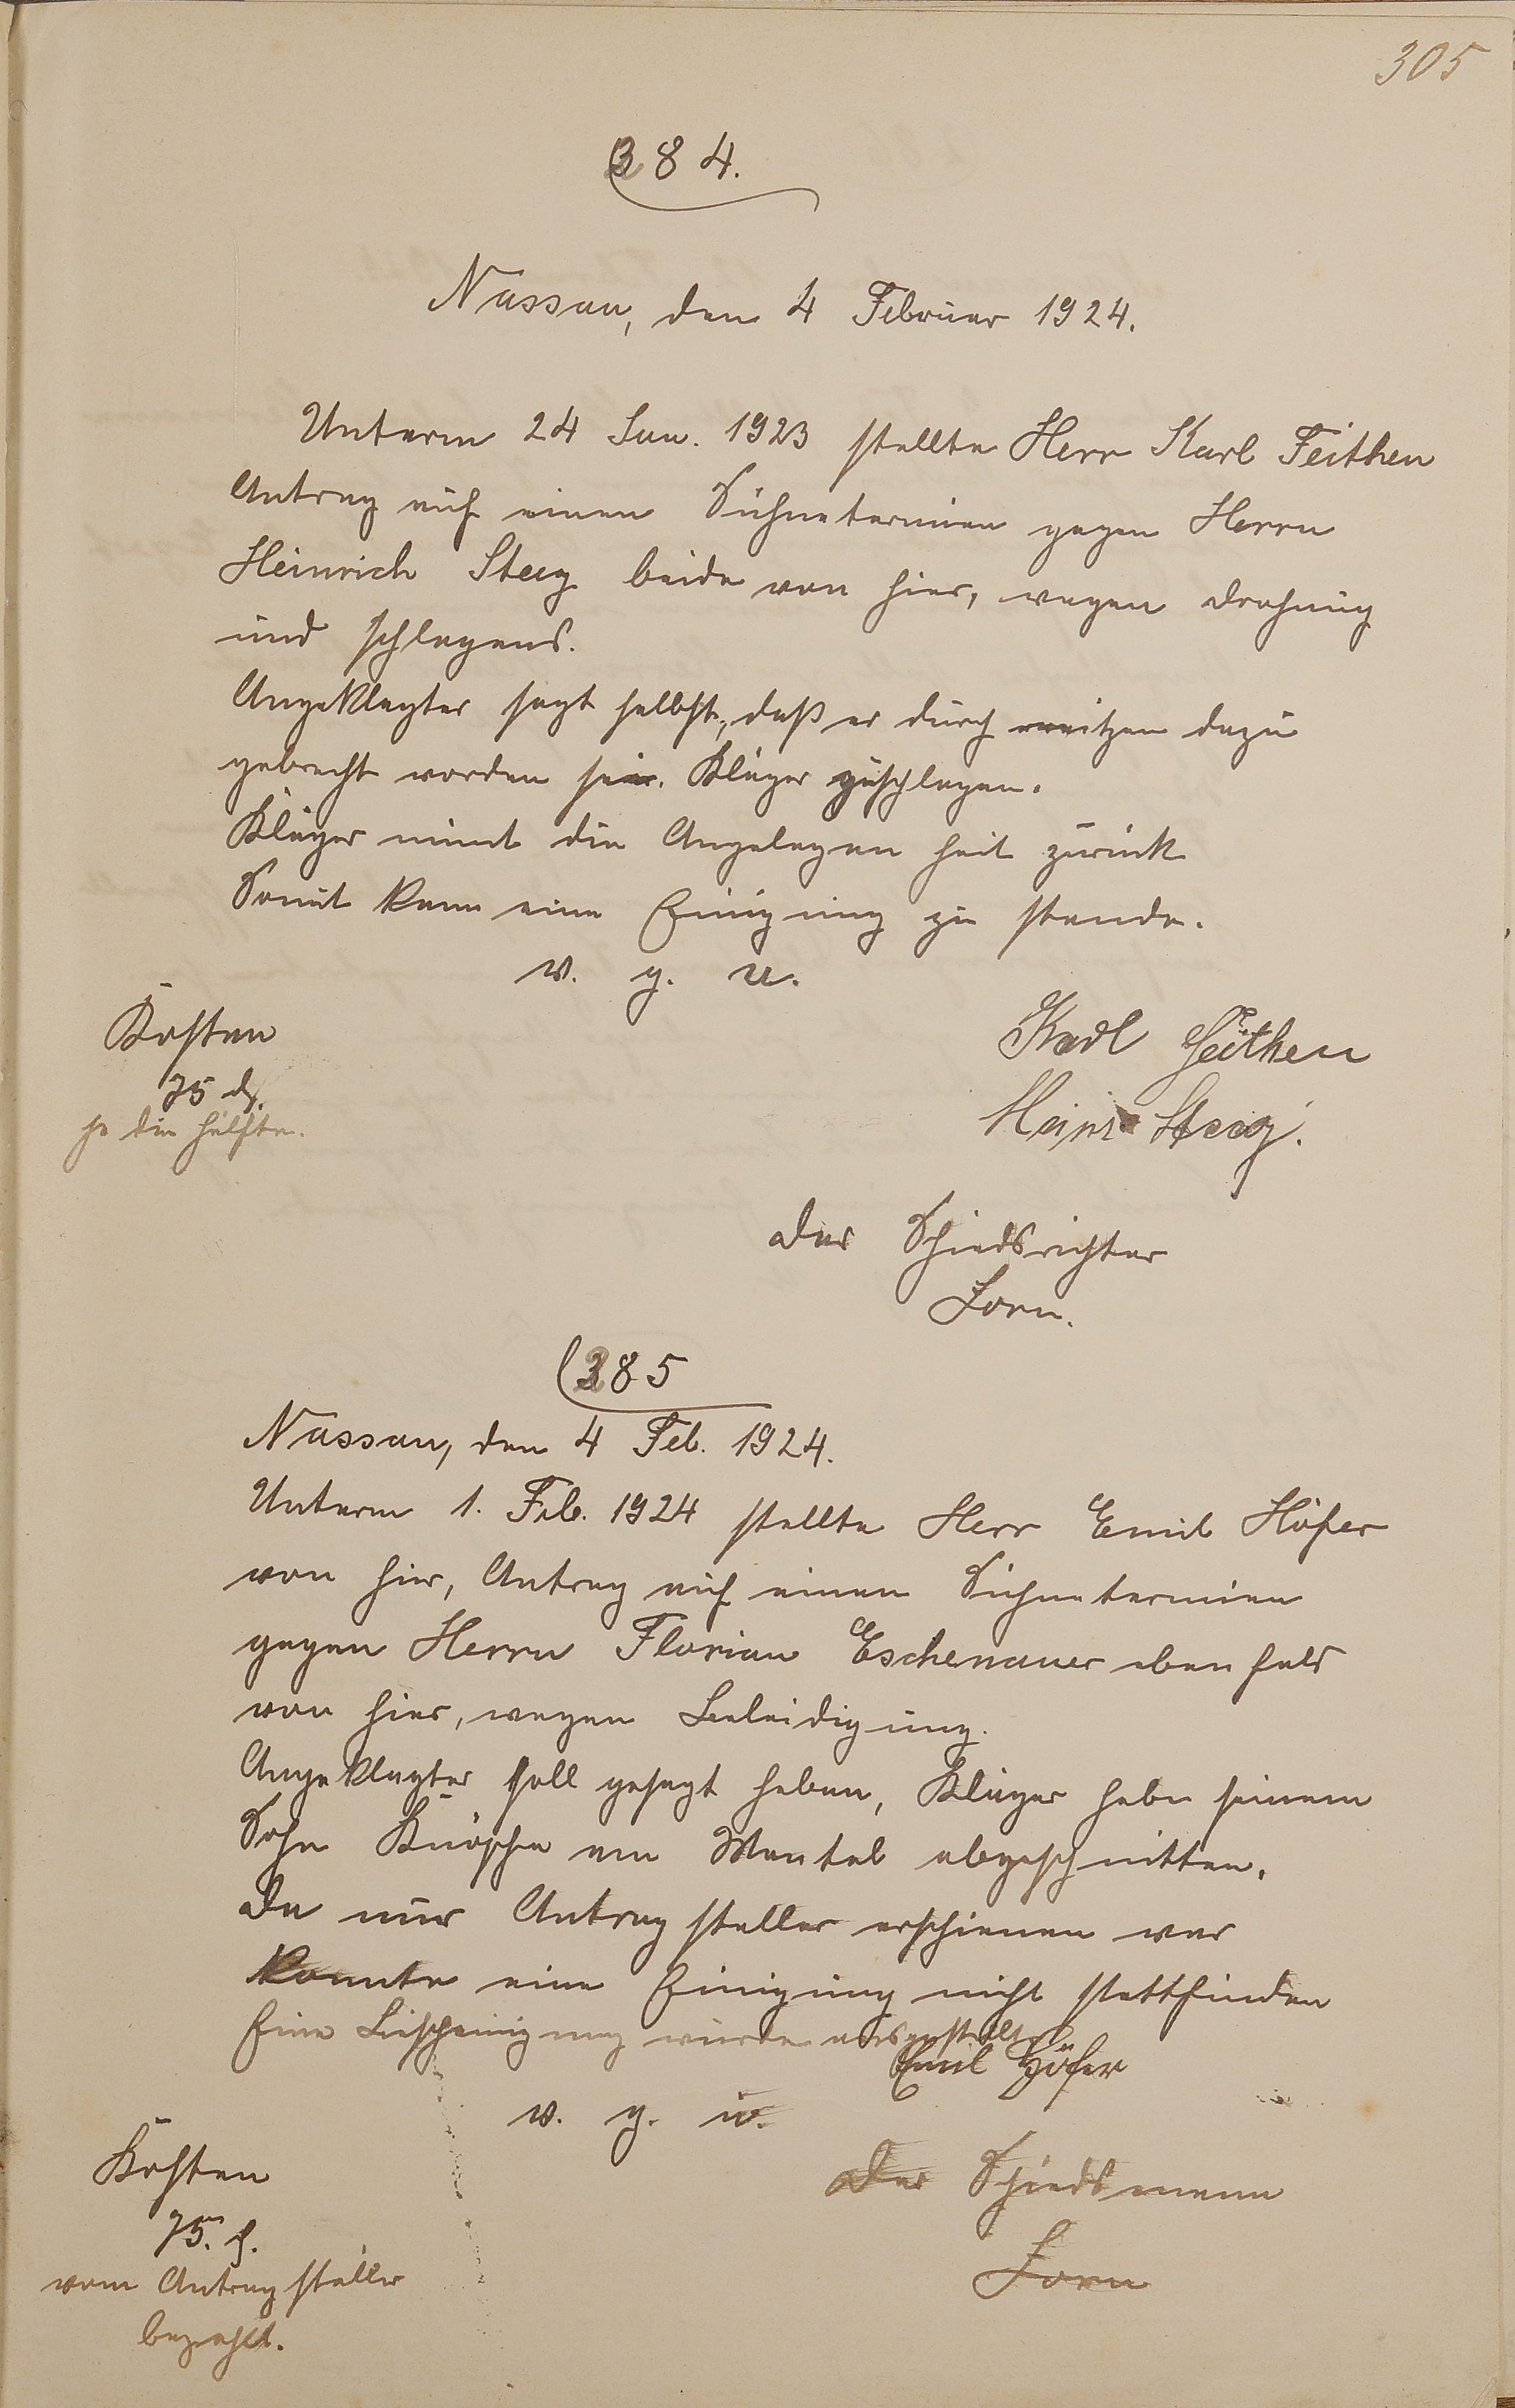 305
384.
Nassau, den 4 Februar 1924.
Unterm 24 Jan. 1923 stellte Herr Karl Feithen
Antrag auf einen Sühnetermien gegen Herrn
Heinrich Steeg beide von hier, wegen Drohung
und schlagens.
Angeklagter sagt selbst, daß er durch reitzen dazu
gebracht worden sei. Kläger zuschlagen.
Kläger nimt die Angelegen heit zurück
Somit kam eine Einigung zu stande.
v. g. u.
Kosten
75 ₰.
je die hälfte.
Karl Feithen
Heinr Steeg.
Der Schiedsrichter
Zorn.
385
Nassau, den 4 Feb. 1924.
Unterm 1. Feb. 1924 stellte Herr Emil Höfer
von hier, Antrag auf einen Sühnetermien
gegen Herrn Florian Eschenauer ebenfals
von hier, wegen Beleidigung.
Angeklagter soll gesagt haben, Kläger habe seinem
Sohn Knöpfe am Mantel abgeschnitten.
Da nur Antragsteller erschienen war
konnte eine Einigung nicht stattfinden
Eine Bescheinigung wurde ausgestellt
Emil Höfer
v. g. u.
Kosten
75. ₰.
vom Antragsteller
bezahlt.
Der Schiedsmann
Zorn